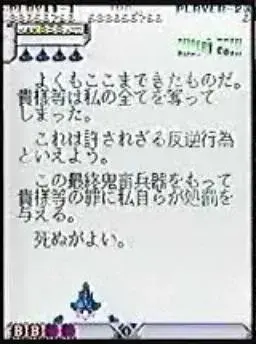 PLAYER-1
PLAYER-2
よくもここまできたものだ。
貴様等は私の全てを奪って
しまった。
これは許されざる反逆行為
といえよう。
この最終鬼畜兵器をもって
貴様等の罪に私自らが処罰を
与える。
死ぬがよい。